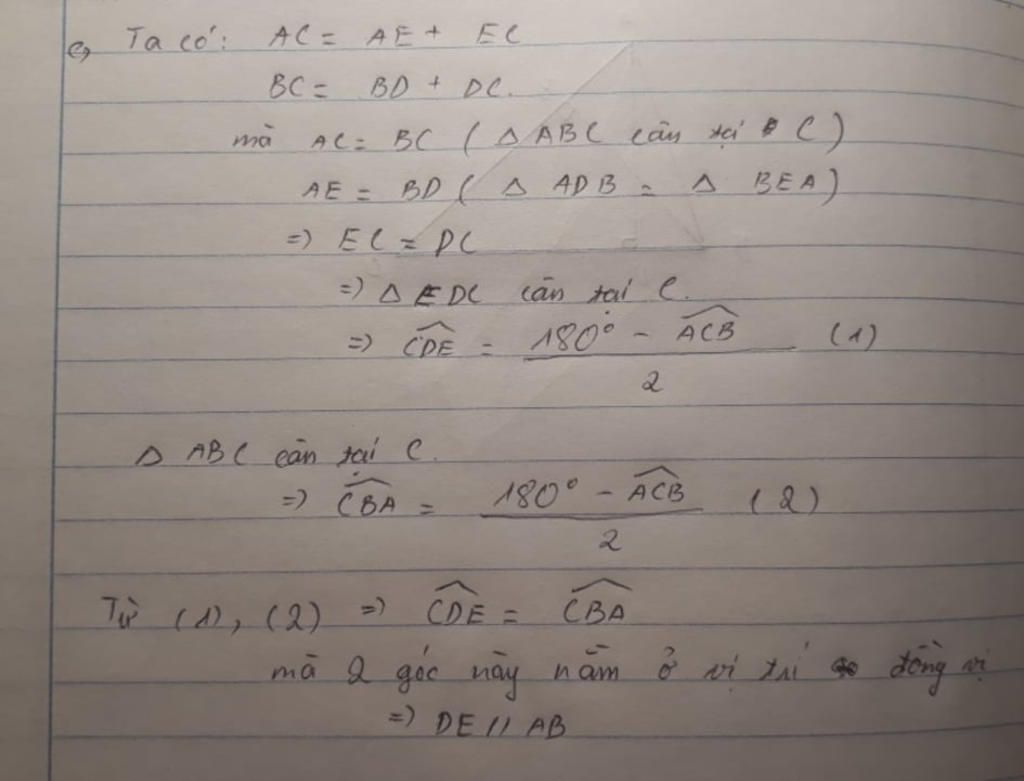 c, Ta có: AC = AE + EC
BC = BD + DC.
mà AC = BC ( Δ ABC cân tại C )
AE = BD ( Δ ADB = Δ BEA )
=> EC = DC
=> Δ EDC cân tại C.
=> \widehat{CDE} = \frac{180° - \widehat{ACB}}{2} (1)
Δ ABC cân tại C.
=> \widehat{CBA} = \frac{180° - \widehat{ACB}}{2} (2)
Từ (1), (2) => \widehat{CDE} = \widehat{CBA}
mà 2 góc này nằm ở vị trí đồng vị
=> DE // AB